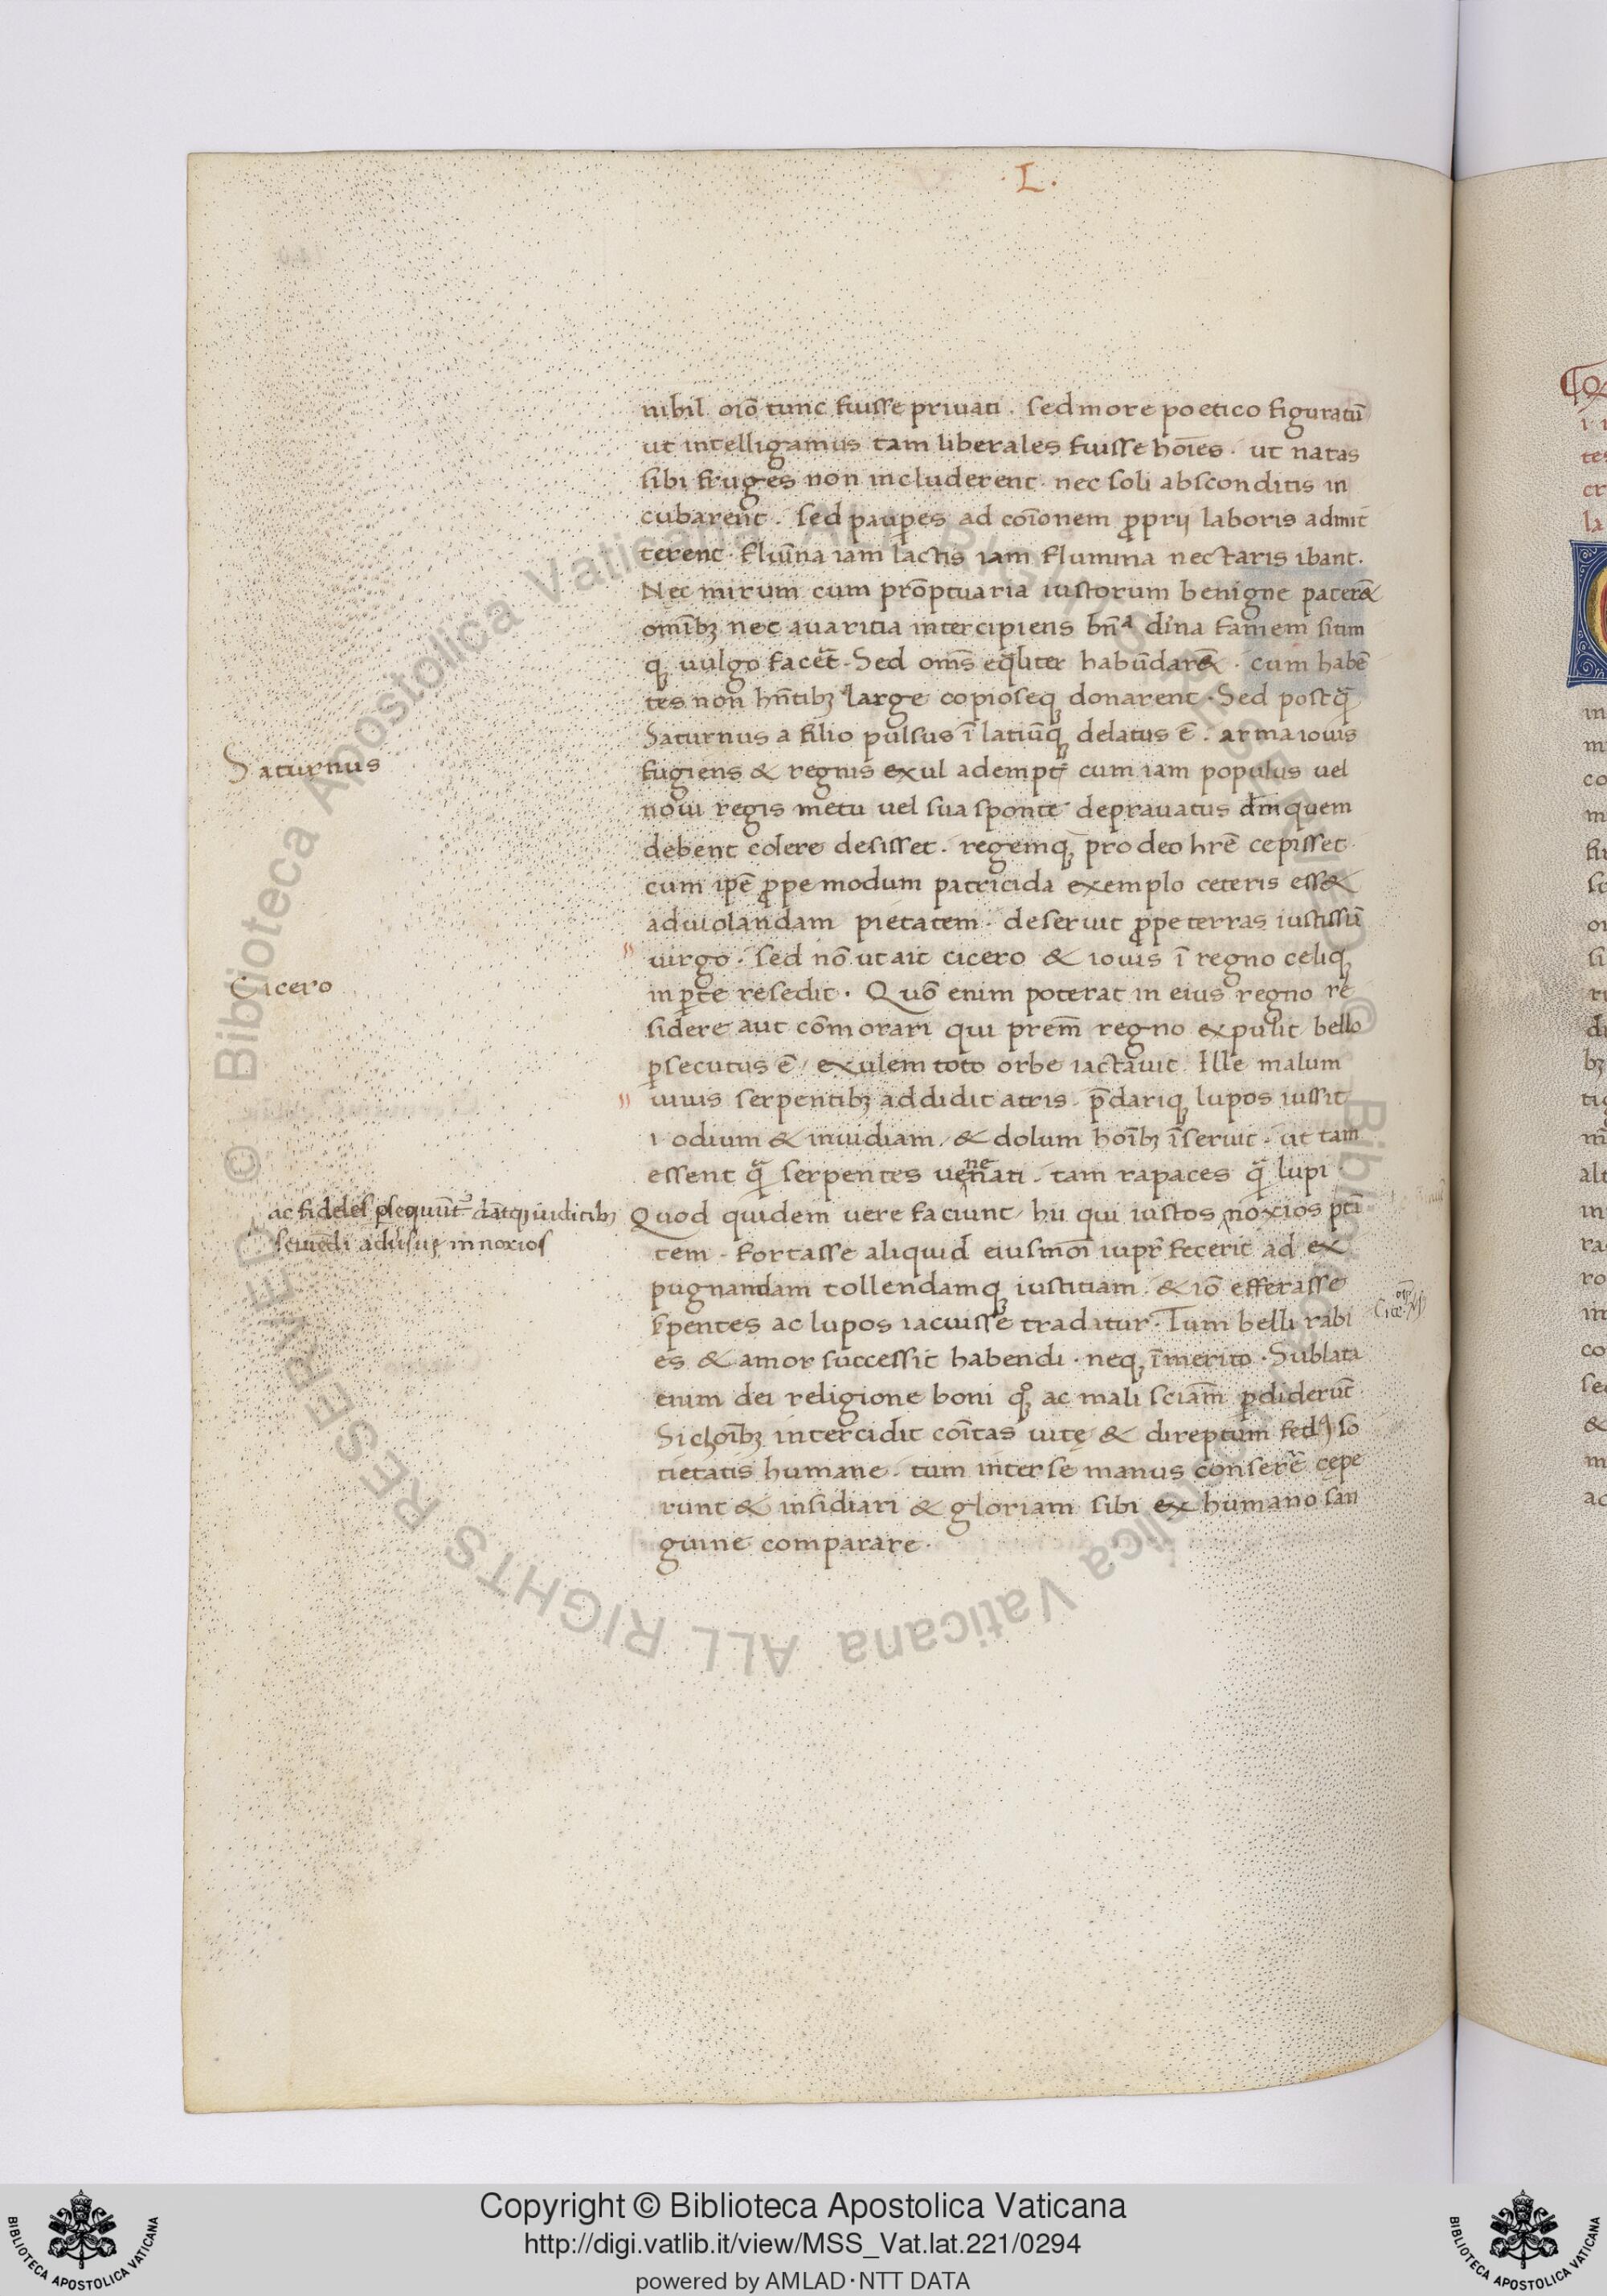 · L ·
nihil oīo tunc fuisse priuati . sed more poetico figuratū
ut intelligamus tam liberales fuisse hoīes . ut natas
sibi fruges non includerent . nec soli absconditis in
cubarent . sed paupes ad coīonem proprij laboris admit
terent . fluīna iam lactis iam flumina nectaris ibant .
Nec mirum cum prōptuaria iustorum benigne paterē&
omībꝫ nec auaritia intercipiens bn̄a diīna famem sitim
qꝫ uulgo facet̄ . Sed oms̄ eqliter habūdarē& . cum habē
tes non hn̄tibꝫ large copioseqꝫ donarent . Sed postq̄
Saturnus
Saturnus a filio pulsus ī latiūqꝫ delatus ē . arma iouis
fugiens & regnis exul adempt cum iam populus uel
noui regis metu uel sua sponte deprauatus dm̄ quem
debent colere desisset . regemqꝫ pro deo hr̄e cepisset .
cum ipē ꝓpe modum patricida exemplo ceteris ess&
ad uiolandam pietatem . deseruit ꝓpe terras iustissū
uirgo . sed nō ut ait cicero & iouis ī regno celiqꝫ
Cicero
in ꝑte resedit . Quō enim poterat in eius regno re
sidere aut cōmorari qui prem̄ regno expulit bello
ꝑsecutus ē / exulem toto orbe iactauit . Ille malum
uirus serpentibꝫ addidit atris . p̄dariqꝫ lupos iussit
i odium & inuidiam / & dolum hoībꝫ īseruit . ut tam
essent q̄ serpentes uenenati . tam rapaces q̄ lupi .
ac fideles ꝑsequūt dātqꝫ iudicibꝫ
seuiēdi aduīsus innoxios
Quod quidem uere faciunt / hii qui iustos noxios
tem . fortasse aliquid eiusmoī iupr̄ fecerit ad ex
pugnandam tollendamqꝫ iustitiam . & iō efferasse
ẜpentes ac lupos iacuisse tradatur . Tum belli rabi
es & amor successit habendi . neqꝫ īmerito . Sublata
enim dei religione boni qꝫ ac mali sciam̄ ꝑdiderūt .
Sic hoībꝫ intercidit coītas uitę & direptum fed so
tietatis humane . tum inter se manus conserer̄e cepe
runt & insidiari & gloriam sibi ex humano san
guine comparare .
Copyright © Biblioteca Apostolica Vaticana
http://digi.vatlib.it/view/MSS_Vat.lat.221/0294
powered by AMLAD·NTT DATA